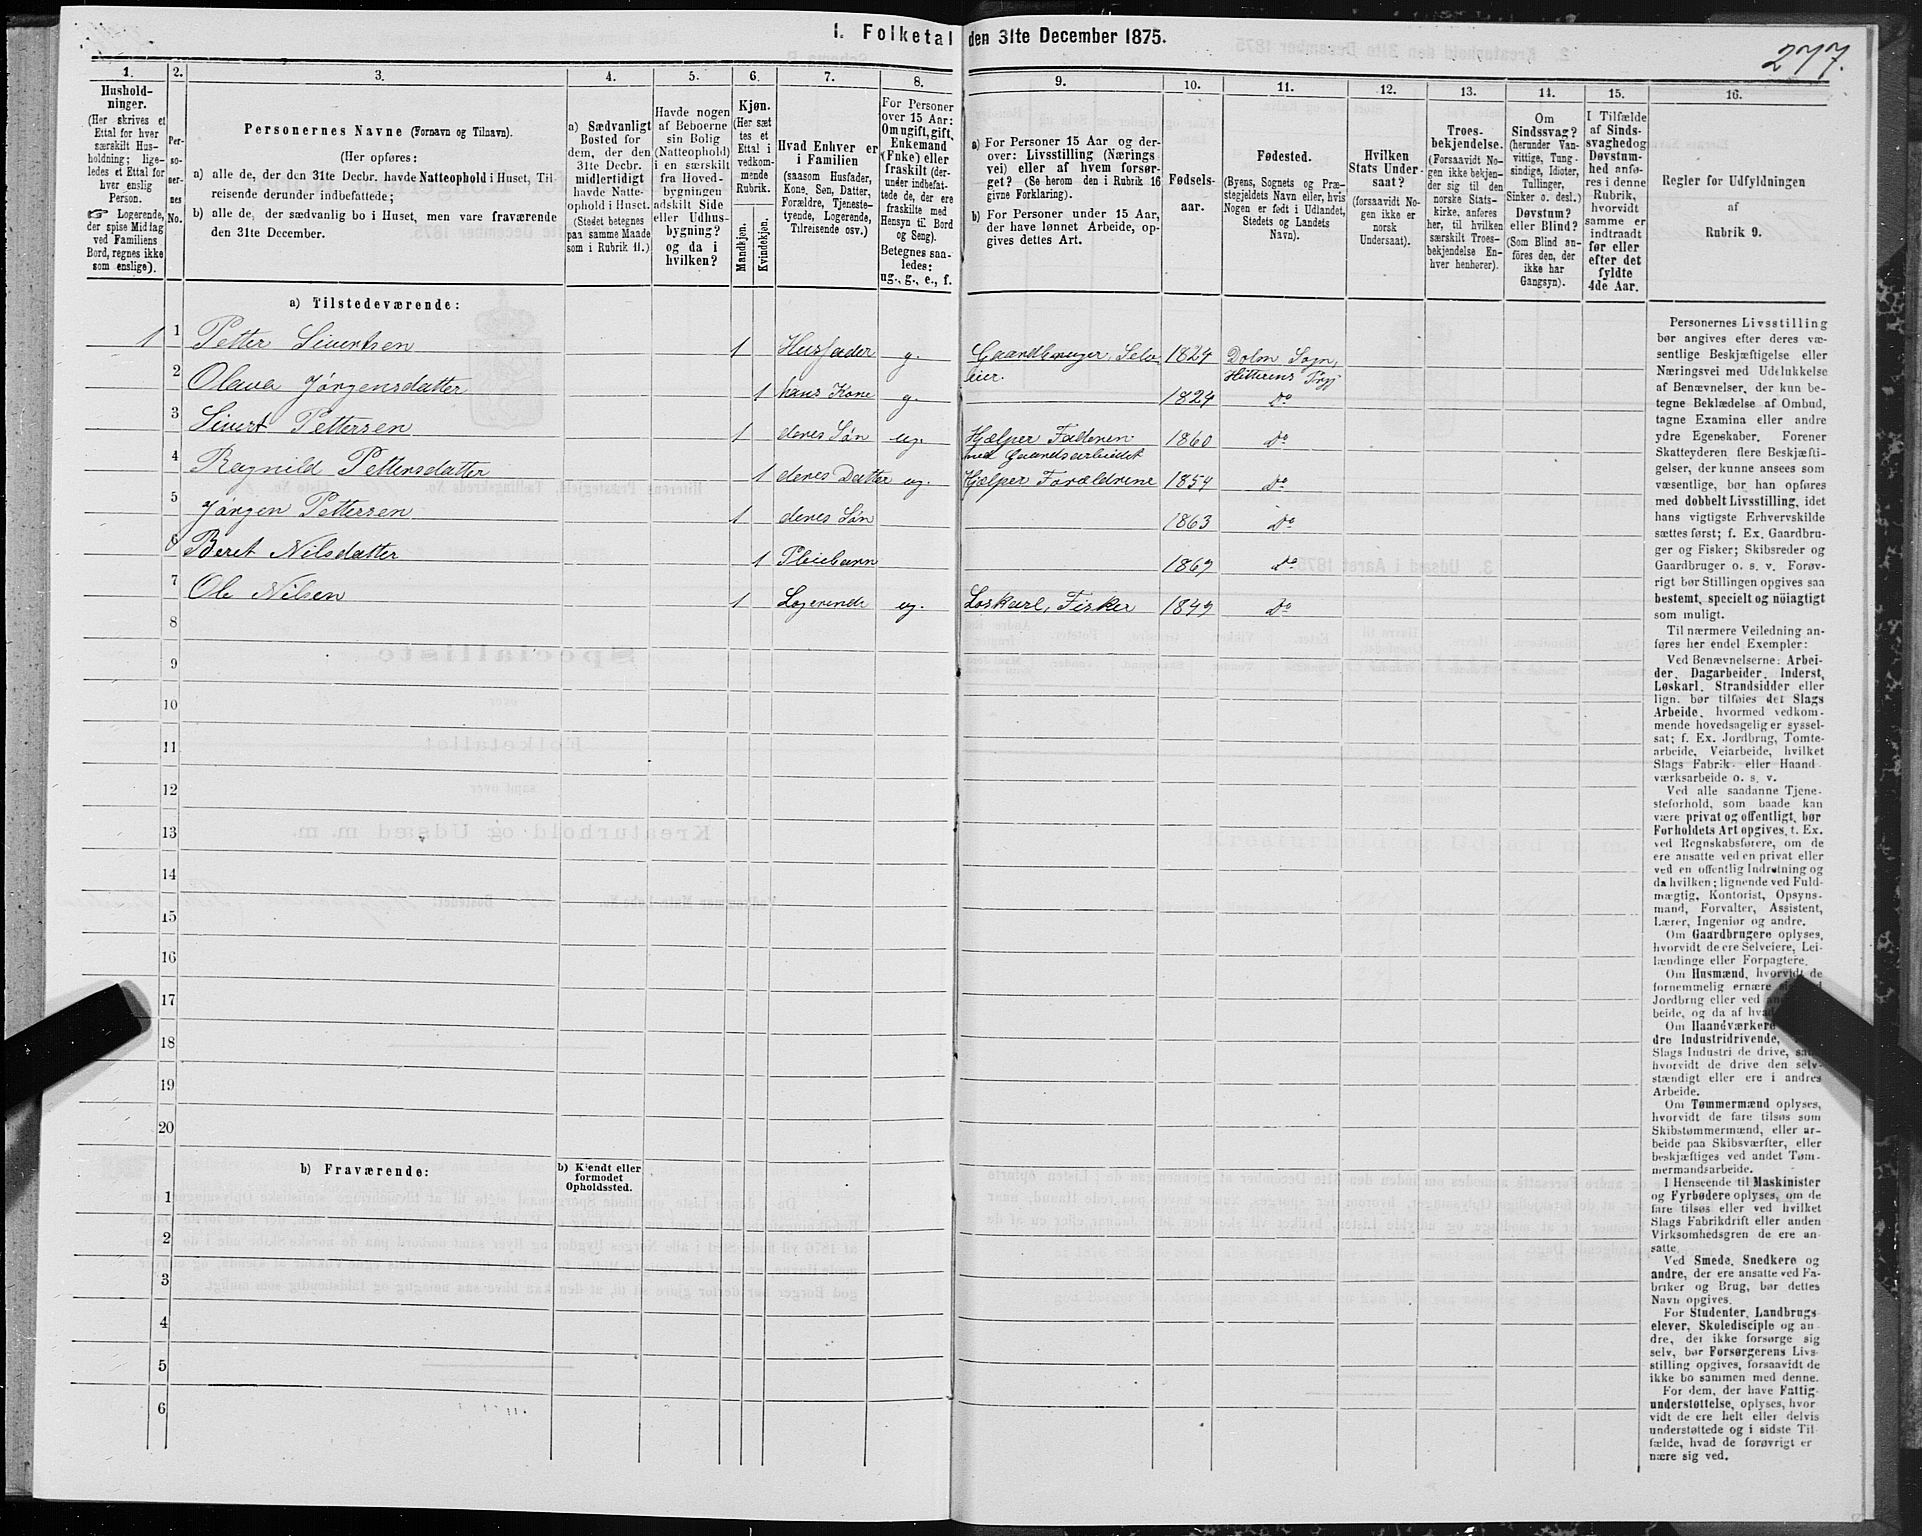 1. Folketal den 31te December 1875.
277.
1.
Hushold-
ninger.
(Her skrives et
Ettal for hver
særskilt Hus-
holdning; lige-
ledes et Ettal for
hver enslig
Person.
☞ Logerende,
der spise Middag
ved Familiens
Bord, regnes ikke
som enslige).
2.
Per-
so-
ner-
nes
No.
3.
Personernes Navne (Fornavn og Tilnavn).
(Her opføres:
a) alle de, der den 31te Decbr. havde Natteophold i Huset, Til-
reisende derunder indbefattede;
b) alle de, der sædvanlig bo i Huset, men vare fraværende
den 31te December.
4.
a) Sædvanligt
Bosted for
dem, der den
31te Decbr.
midlertidigt
havde Natte-
ophold i Huset.
(Stedet betegnes
paa samme Maade
som i Rubrik 11.)
5.
Havde nogen
af Beboerne
sin Bolig
(Natteophold)
i en særskilt
fra Hoved-
bygningen
adskilt Side
eller Udhus-
bygning?
og da i
hvilken?
6.
Kjøn.
(Her sæt
tes et
Ettal i
vedkom-
mende
Rubrik.
Mandkjøn.
Kvindekjøn.
7.
Hvad Enhver er
i Familien
(saasom Husfader,
Kone, Søn, Datter,
Forældre, Tjeneste-
tyende, Logerende,
Tilreisende osv.)
8.
For Personer
over 15 Aar:
Om ugift, gift,
Enkemand
(Enke) eller
fraskilt (der-
under indbefat-
tede de, der ere
fraskilte med
Hensyn til Bord
og Seng).
Betegnes saa-
ledes:
ug., g., e., f.
9.
a) For Personer 15 Aar og der-
over: Livsstilling (Nærings
vei) eller af hvem forsør-
get? (Se herom den i Rubrik 16
givne Forklaring).
b) For Personer under 15 Aar,
der have lønnet Arbeide, op-
gives dettes Art.
10.
Fødsels-
aar.
11.
Fødested.
(Byens, Sognets og Præ-
stegjeldets Navn eller, hvis
Nogen er født i Udlandet,
Stedets og Landets
Navn).
12.
Hvilken
Stats Under-
saat?
(forsaavidt No-
gen ikke er
norsk
Undersaat).
13.
Troes-
bekjendelse.
(Forsaavidt No-
gen ikke bekjen-
der sig til den
norske Stats-
kirke, anføres
her, til hvilken
særskilt Troes-
bekjendelse En-
hver henhører).
14.
Om
Sindssvag?
(herunder Van-
vittige, Tung-
sindige, Idioter,
Tullinger,
Sinker o. desl.)
Døvstum?
eller Blind?
(Som Blind an-
føres den, der
ikke har
Gangsyn).
15.
I Tilfælde
af Sinds-
svaghed og
Døvstum-
hed anfø-
res i denne
Rubrik,
hvorvidt
samme er
indtraadt
før eller
efter det
fyldte
4de Aar.
16.
Regler for Udfyldningen
af
Rubrik 9.
a) Tilstedeværende:
1 1 Petter Sivertsen 1 Husfader g. Gaardbruger, Selv- 1824 Dolm Sogn,
eier. Hitterens Prgj
2 Olava Jørgensdatter 1 hans Kone g. 1824 Do
3 Sivert Pettersen 1 deres Søn ug. Hjælper Faderen 1860 Do
med Gaardsarbeidet
4 Ragnild Pettersdatter 1 deres Datter ug. Hjælper Forældrene 1854 Do
5 Jørgen Pettersen 1 deres Søn 1863 Do
6 Beret Nilsdatter 1 Pleiebarn 1867 Do
7 Ole Nilsen 1 Logerende ug. Løskarl, Fisker 1849 Do
8
9
10
11
12
13
14
15
16
17
18
19
20
b) Fraværende:
b) Kjendt eller
formodet
Opholdssted.
1
2
3
4
5
6
Personernes Livsstilling
bør angives efter deres væ-
sentlige Beskjæftigelse eller
Næringsvei med Udelukkelse
af Benævnelser, der kun be-
tegne Beklædelse af Ombud,
tagne Examina eller andre
ydre Egenskaber. Forener
Skatteyderen flere Beskjæfti-
gelser, der kunne ansees som
væsentlige, bør han opføres
med dobbelt Livsstilling, idet
hans vigtigste Erhvervskilde
sættes først; f. Ex. Gaardbru-
ger og Fisker; Skibsreder og
Gaardbruger o. s. v. Forøv-
rigt bør Stillingen opgives saa
bestemt, specielt og nöiagtigt
som muligt.
Til nærmere Veiledning an-
føres her endel Exempler:
Ved Benævnelserne: Arbei-
der, Dagarbeider, Inderst,
Løskarl, Strandsidder eller
lign. bør tilføies det Slags
Arbeide, hvormed vedkom-
mende hovedsagelig er syssel-
sat; f. Ex. Jordbrug, Tomte-
arbeide, Veiarbeide, hvilket
Slags Fabrik- eller Haand
værksarbeide o. s. v.
Ved alle saadanne Tjene-
steforhold, som baade kan
være privat og offentligt, bør
Forholdets Art opgives, t. Ex.
ved Regnskabsførere, om de
ere ansatte ved en privat eller
ved en offentlig Indretning og
da hvilken; lignende ved Fuld-
mægtig, Kontorist, Opsyns-
mand, Forvalter, Assistent,
Lærer, Ingeniør og andre.
Om Gaardbrugere oplyses,
hvorvidt de ere Selveiere, Lei-
lændinge eller Forpagtere.
Om Husmænd, hvorvidt de
fornemmelig ernære
Jordbrug eller ved
beide, og da af
Om Haandværkere
dre Industridrivende,
Slags Industri de drive,
hvorvidt de drive den selv-
stændigt eller ere i andres
Arbeide.
Om Tømmermænd oplyses,
hvorvidt de fare tilsøs som
Skibstømmermænd, eller ar-
beide paa Skibsværfter, eller
beskjæftiges ved andet Tøm-
mermandsarbeide.
I Henseende til Maskinister
og Fyrbødere oplyses, om de
fare tilsøs eller ved hvilket
Slags Fabrikdrift eller anden
Virksomhedsgren de ere an-
satte.
Ved Smede, Snedkere og
andre, der ere ansatte ved Fa-
briker og Brug, bør dettes
Navn opgives.
For Studenter, Landbrugs
elever, Skoledisciple og an-
dre, der ikke forsørge sig
selv, bør Forsørgerens Livs
stilling opgives, forsaavidt de
ikke bo sammen med denne.
For dem, der have Fattig
understøttelse, oplyses, hvor
vidt de ere helt eller delvis
understøttede og i sidste Til
fælde, hvad de forøvrigt er
nære sig ved.